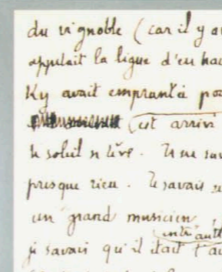 du vignoble (car il y av
appelait la ligue d'en hau
Ky avait emprunté po
(est arrivé
le soleil se lève. Tu ne sav
presque rien. Tu savais
un grand musicien
entre aut
je savais qu'il était l'a